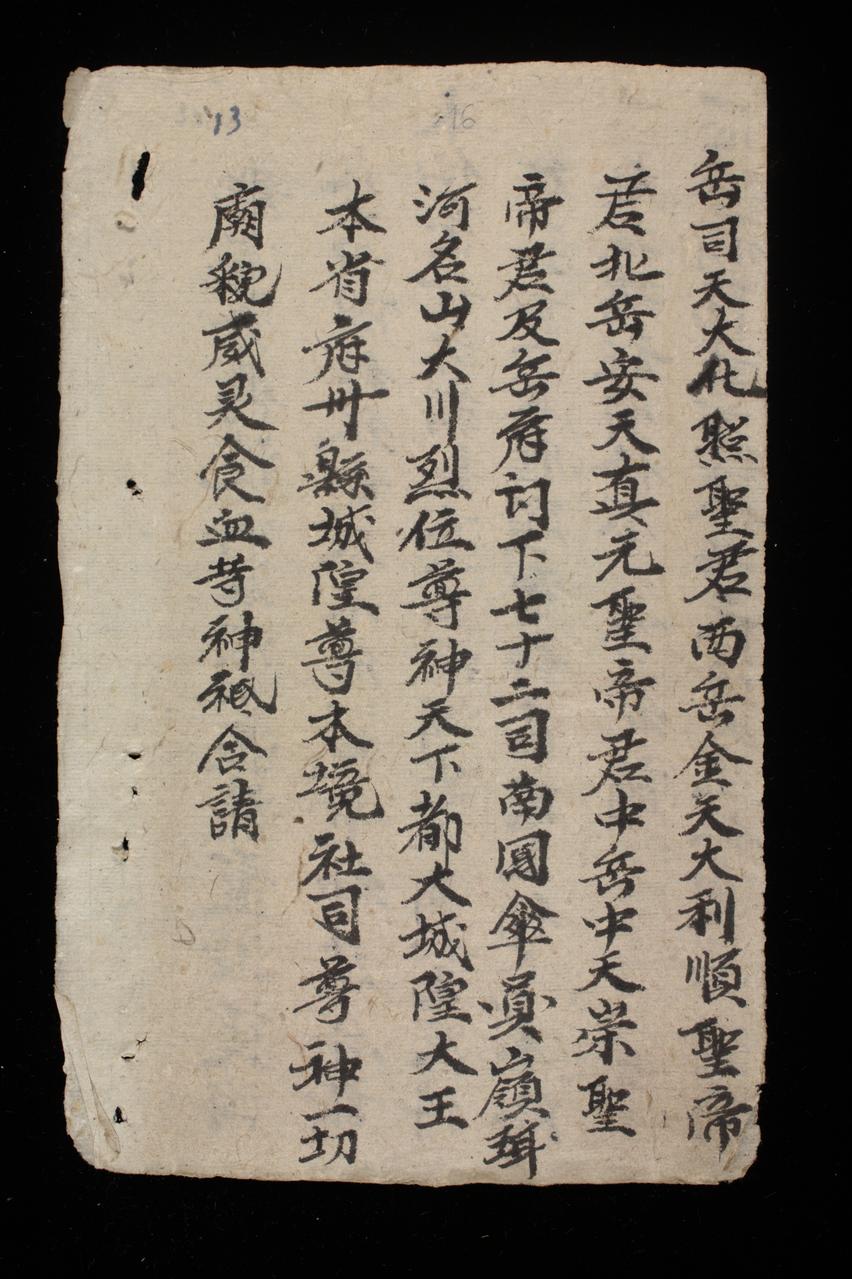 13
16
岳司天大化㷖聖君西岳金天大利順聖帝
君北岳安天真元聖帝君中岳中天崇聖
帝君及岳府訶下七十二司南國傘員嶺
河名山大川烈位尊神天下都大城隍大王
本省府州縣城隍尊本境社司尊神一切
廟貌威灵食血䓁神祗含請